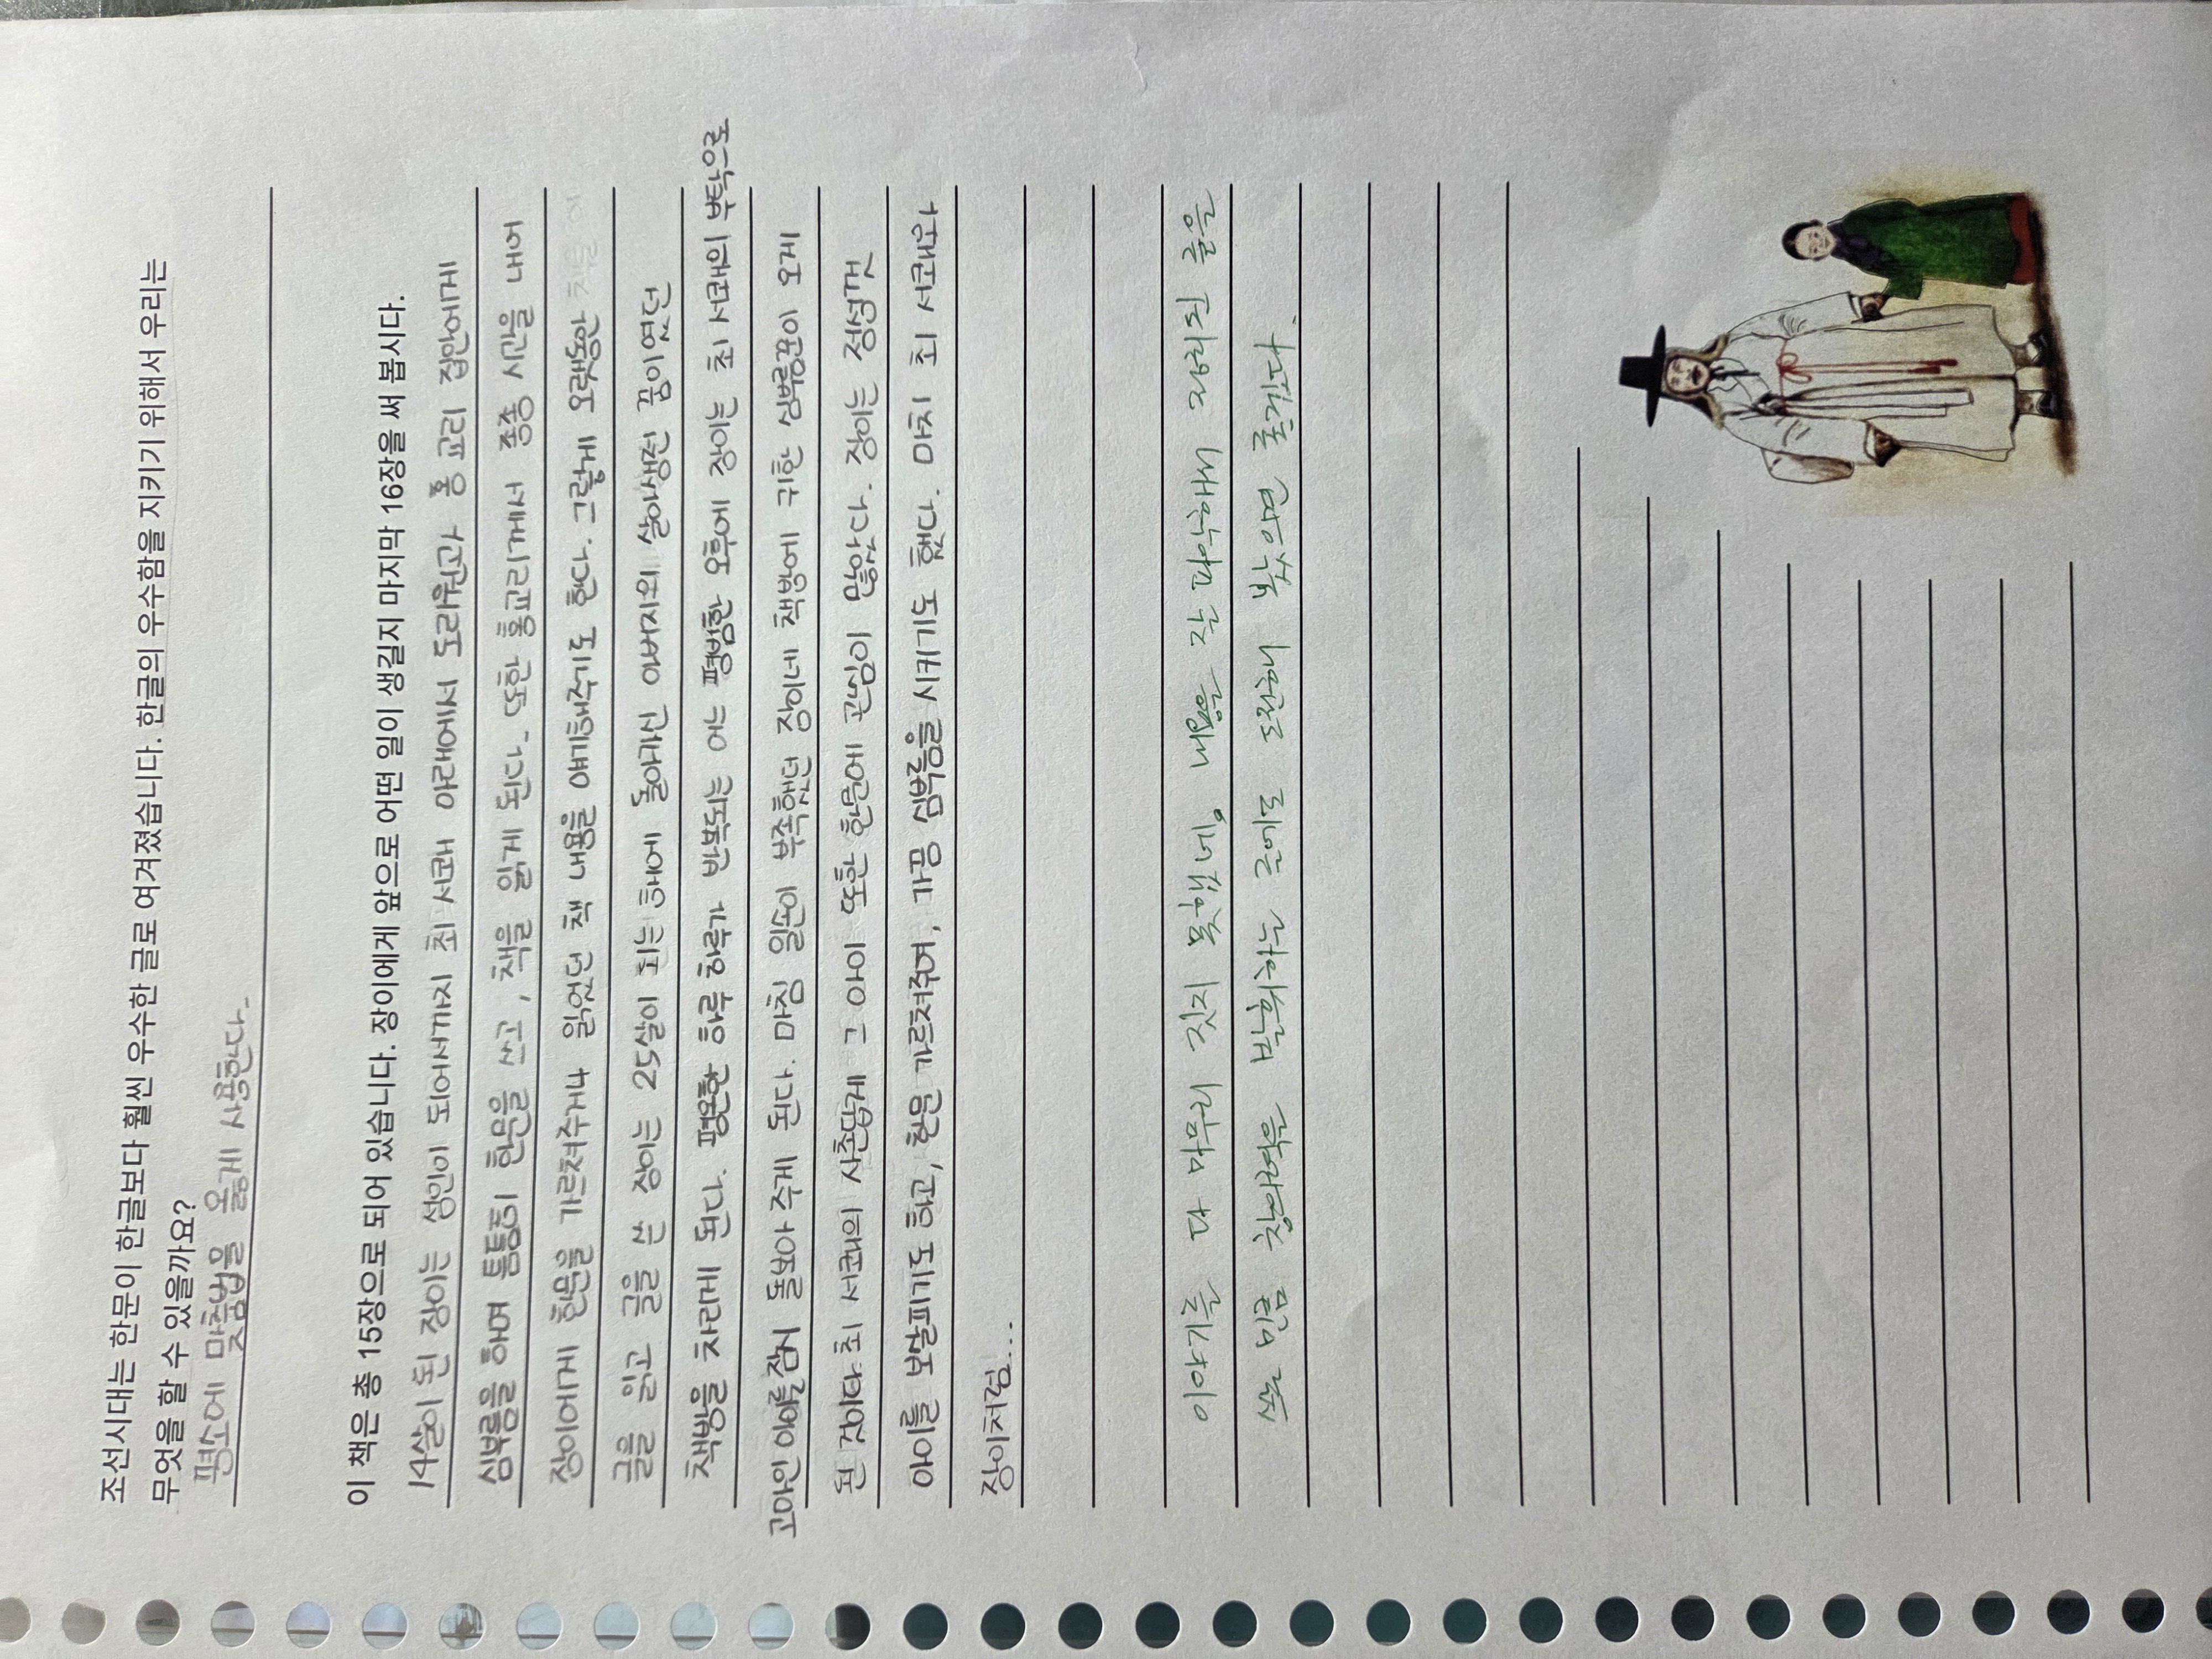 조선시대는 한문이 한글보다 훨씬 우수한 글로 여겨졌습니다. 한글의 우수함을 지키기 위해서 우리는
무엇을 할 수 있을까요?
평소에 맞춤법을 옳게 사용한다.
이 책은 총 15장으로 되어 있습니다. 장이에게 앞으로 어떤 일이 생길지 마지막 16장을 써 봅시다.
14살이 된 장이는 성인이 되어서까지 최 서쾌 아래에서 도리원과 홍 교리 집안에게
심부름을 하며 틈틈히 한문을 쓰고, 책을 읽게 된다. 또한 홍교리께서 종종 시간을 내어
장이에게 한문을 가르쳐주거나 읽었던 책 내용을 얘기해주기도 한다. 그렇게 오랫동안
글을 읽고 글을 쓴 장이는 25살이 되는 해에 돌아가신 아버지의 살아생전 꿈이였던
책방을 차리게 된다. 평온한 하루 하루가 반복되는 어느 평범한 오후에 장이는 최 서쾌의 부탁으로
고아인 아이를 잠시 돌보아 주게 된다. 마침 일손이 부족했던 장이네 책방에 귀한 심부름꾼이 오게
된 것이다. 최 서쾌의 사촌답게 그 아이 또한 한문에 관심이 많았다. 장이는 정성껏
아이를 보살피기도 하고, 한문 가르쳐주며, 가끔 심부름을 시키기도 했다. 마치 최 서쾌와
장이처럼....
이야기를 다 마무리 짓지 못했네. 내용을 잘 파악해서 정리된 글을
쓰는 만큼 창의력을 발휘하는 글에도 도전해 봤으면 좋겠다.